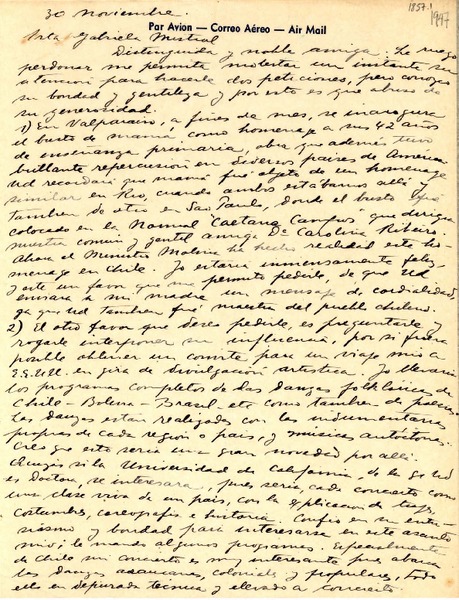 30 Noviembre.
1857.1
1947
Par Avion — Correo Aéreo — Air Mail
Srta Gabriela Mistral
Distinguida y noble amiga. Le ruego
perdonar me permita molestar un instante su
atención para hacerle dos peticiones, pero conozco
su bondad y gentileza y por esto es que abuso de
su generosidad.
1) En Valparaiso, a fines de mes, se inaugura
el busto de mamá como homenaje a sus 42 años
de enseñanza primaria, obra que además tuvo
brillante repercusión en diversos paises de America
Ud recordará que mamá fué objeto de un homenaje
similar en Rio, cuando ambas estábamos allí, y
tambien de otro en Sao Paulo, donde el busto fué
colocado en la Normal "Caetano Campos" que dirigia
nuestra común y gentil amiga Da Carolina Ribeiro.
Ahora el Ministro Molina ha hecho realidad este ho-
menaje en Chile. Yo estaria inmensamente feliz,
y este un favor que me permito pedirle, de que Ud
enviara a mi madre un mensaje de cordialidad,
ya que Ud tambien fué maestra del pueblo chileno.
2) El otro favor que deseo pedirle, es preguntarle y
rogarle interponer su influencia, por si fuera
posible obtener un convite para un viaje mio a
E.E.U.U. en gira de divulgación artistica. Yo llevaria
los programas completos de las danzas folklóricas de
Chile - Bolivia - Brasil - etc como tambien de
las danzas están realizadas con las indumentarias
propias de cada región o pais, y músicas autóctonas.
Creo que esto seria una gran novedad por allí.
Quizás si la Universidad de California, de la que Ud
es Doctora, se interesara, pues seria, cada concierto como
una clase viva de un pais, con la explicacion de trajes,
costumbres, coreografia e historia. Confio en su entu-
siasmo y bondad para interesarse en este asunto
mio; le mando algunos programas. Especialmente
de Chile mi concierto es muy interesante pues abarca
las danzas araucanas, coloniales y populares, todo
ello en depurada técnica y elevado a concierto.